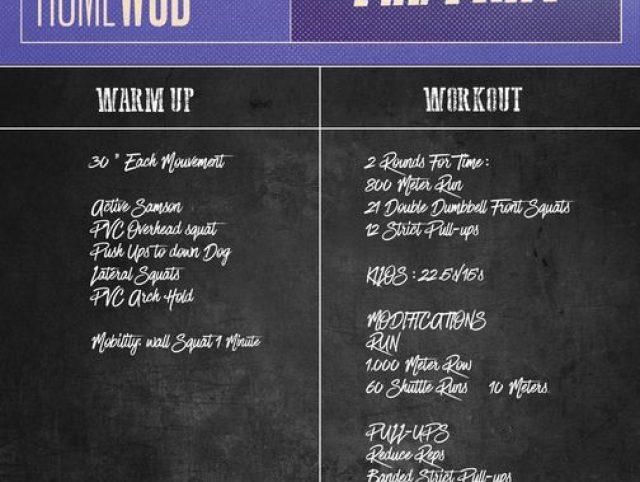 HOMEWOD
WARM UP
30 " Each Mouvement
Active Samson
PVC Overhead squat
Push Ups to down Dog
Lateral Squats
PVC Arch Hold
Mobility: wall Squat 1 Minute
WORKOUT
2 Rounds For Time :
800 Meter Run
21 Double Dumbbell Front Squats
12 Strict Pull-ups
KILOS : 22.5's/15's
MODIFICATIONS
RUN
1.000 Meter Row
60 Shuttle Runs 10 Meters
PULL-UPS
Reduce Reps
Banded Strict Pull-ups